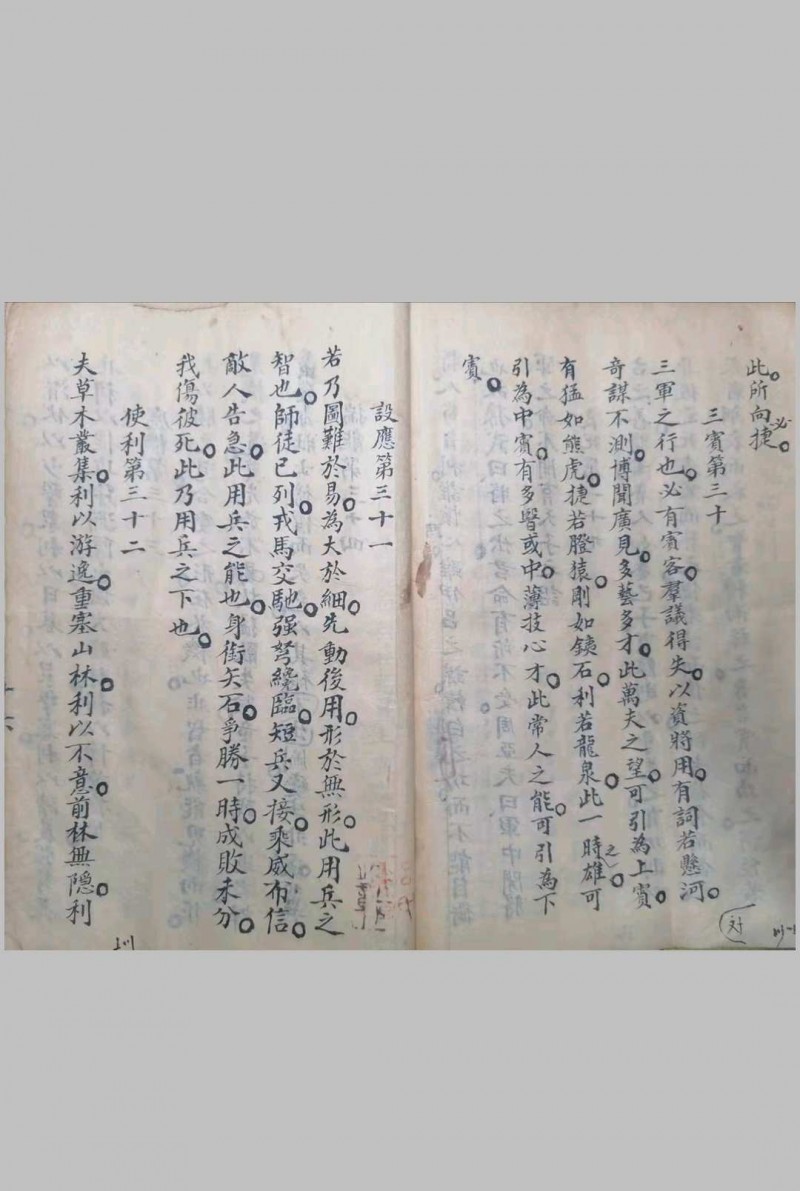 此。所向必捷。
三賓第三十
三軍之行也。必有賓客。羣議得失。以資將用。有詞若懸河。
奇謀不測。博聞廣見。多藝多才。此萬夫之望。可引為上賓。
有猛如熊虎。捷若騰猿。剛如鐵石。利若龍泉。此一時之雄。可
引為中賓。有多醫或中。薄技心才。此常人之能。可引為下
賓。
設應第三十一
若乃圖難於易。為大於細。先動後用。形於無形。此用兵之
智也。師徒已列。戎馬交馳。强弩繞臨。短兵又接。乘威布信。
敵人告急。此用兵之能也。身衝矢石。爭勝一時。成敗未分。
我傷彼死。此乃用兵之下也。
使利第三十二
夫草木叢集。利以游逸。重塞山林。利以不意。前林無隱。利